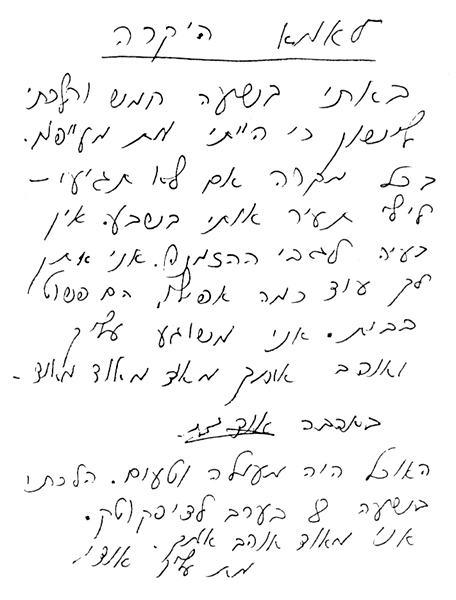 לאמא היקרה
באתי בשעה חמש והלכתי
לישון כי הייתי מת מעייפות.
בכל מקרה אם לא תגיעי –
לילי תעיר אותי בשבע. אין
בעיה לגבי ההזמנות. אני אתן
לך עוד כמה אפילו, הם פשוט
בבית. אני משוגע עליך
ואוהב אותך מאוד מאוד מאוד -
באהבה
האוכל היה מעולה וטעים. הלכתי
בשעה 8 בערב לדיסקוטק.
אני מאוד אוהב אותך.
מת עליך אודי.